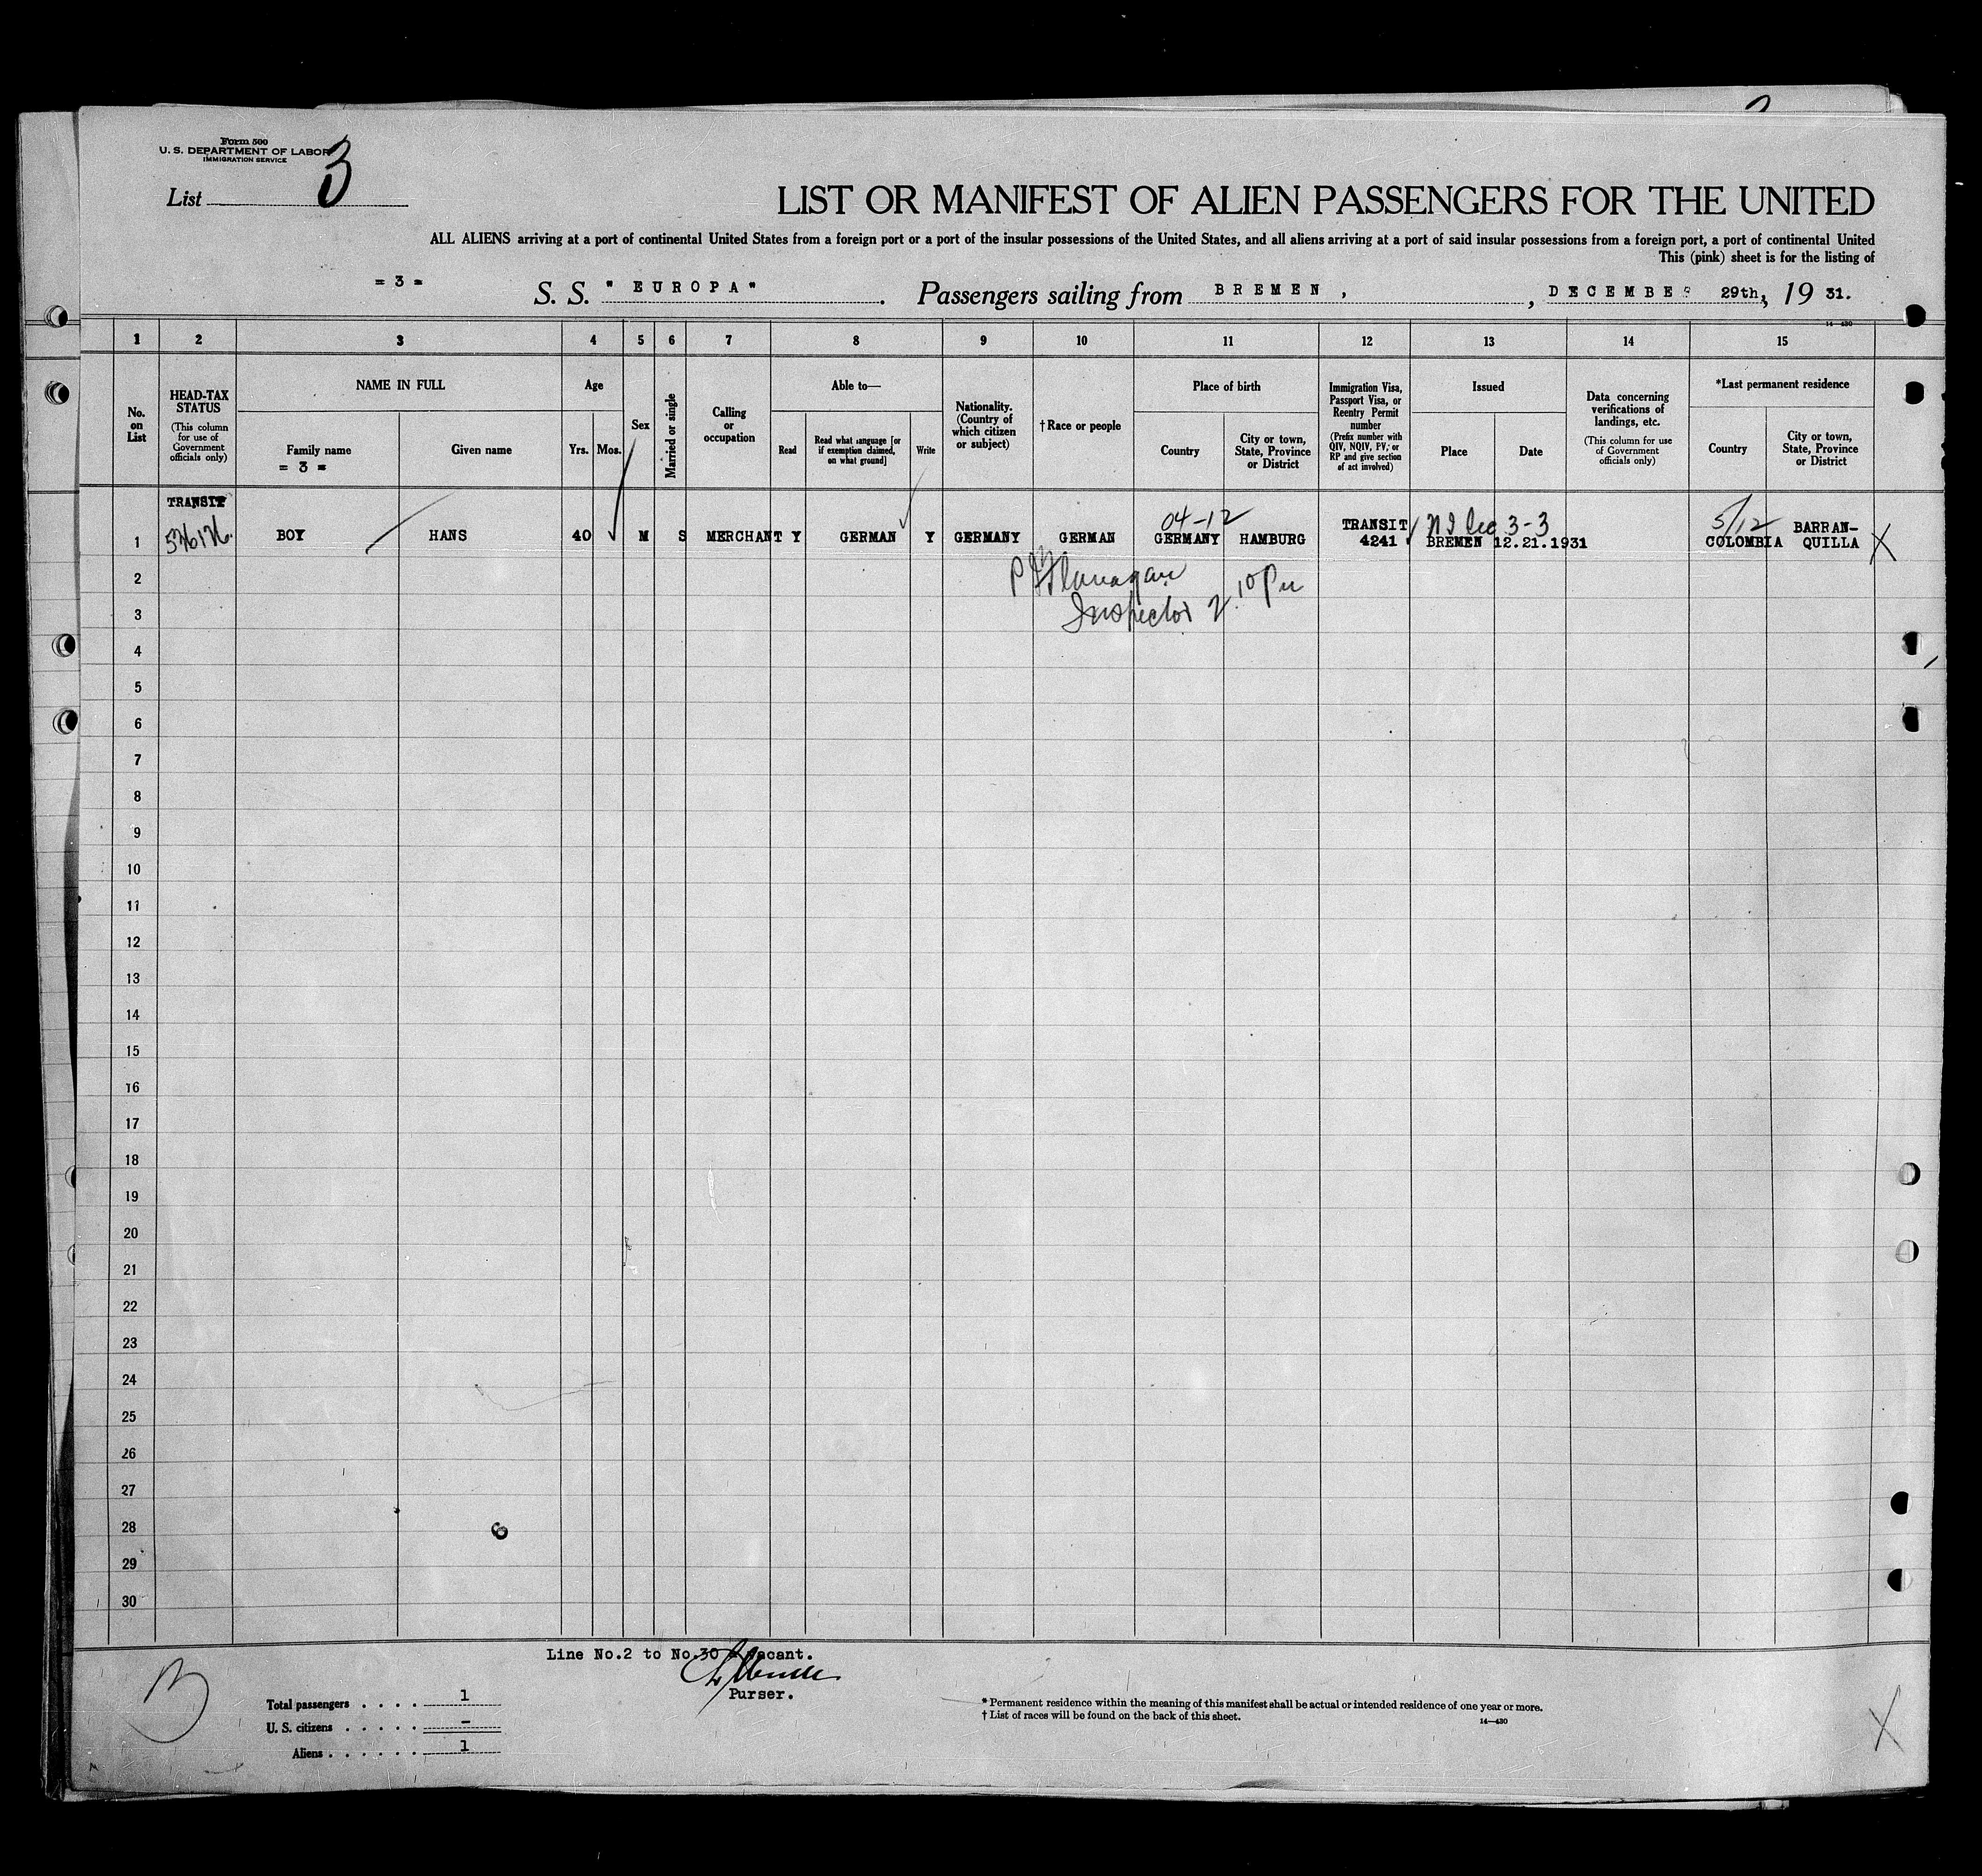 Form 500
U. S. DEPARTMENT OF LABOR
IMMIGRATION SERVICE
List 3
LIST OR MANIFEST OF ALIEN PASSENGERS FOR THE UNITED
ALL ALIENS arriving at a port of continental United States from a foreign port or a port of the insular possessions of the United States, and all aliens arriving at a port of said insular possessions from a foreign port, a port of continental United
This (pink) sheet is for the listing of
= 3 =
S. S. " EUROPA" . Passengers sailing from BREMEN , , DECEMBER 29th, 19 31.
14—430
1 2 3 4 5 6 7 8 9 10 11 12 13 14 15
No. on List
HEAD-TAX STATUS
(This column for use of Government officials only)
NAME IN FULL
Family name
= 3 =
Given name
Age
Yrs. Mos.
Sex
Married or single
Calling or occupation
Able to—
Read
Read what language [or if exemption claimed, on what ground]
Write
Nationality. (Country of which citizen or subject)
† Race or people
Place of birth
Country
City or town, State, Province or District
Immigration Visa, Passport Visa, or Reentry Permit number
(Prefix number with QIV, NQIV, PV, or RP and give section of act involved)
Issued
Place
Date
Data concerning verifications of landings, etc.
(This column for use of Government officials only)
*Last permanent residence
Country
City or town, State, Province or District
TRANSIT
04-12 TRANSIT 3-3 5/12 BARRAN-
1 BOY HANS 40 M S MERCHANT Y GERMAN Y GERMANY GERMAN GERMANY HAMBURG 4241 BREMEN 12.21.1931 COLOMBIA QUILLA X
2 Flanagan
3 Inspector
4
5
6
7
8
9
10
11
12
13
14
15
16
17
18
19
20
21
22
23
24
25
26
27
28
29
30
Line No.2 to No.30 vacant.
Purser.
Total passengers . . . . 1
U. S. citizens . . . . . -
Aliens . . . . . . 1
* Permanent residence within the meaning of this manifest shall be actual or intended residence of one year or more.
† List of races will be found on the back of this sheet.
14—430
X